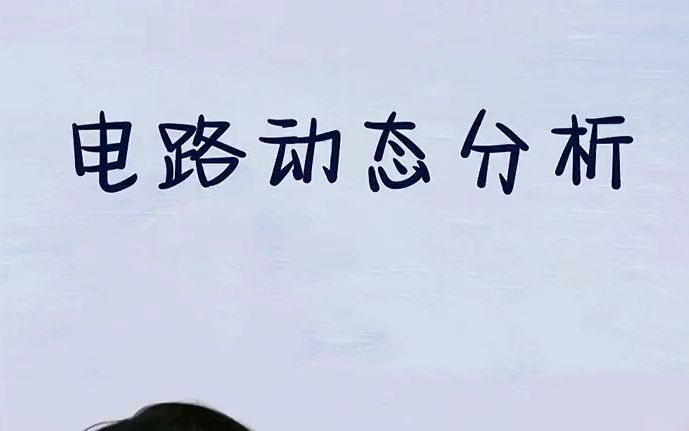 电路动态分析